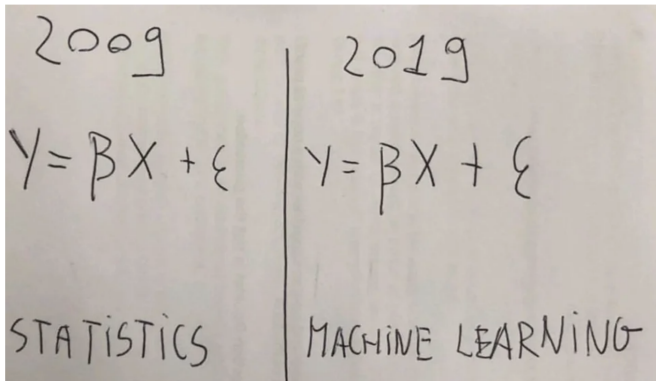 2009
Y = βX + ε
STATISTICS
2019
Y = βX + ε
MACHINE LEARNING